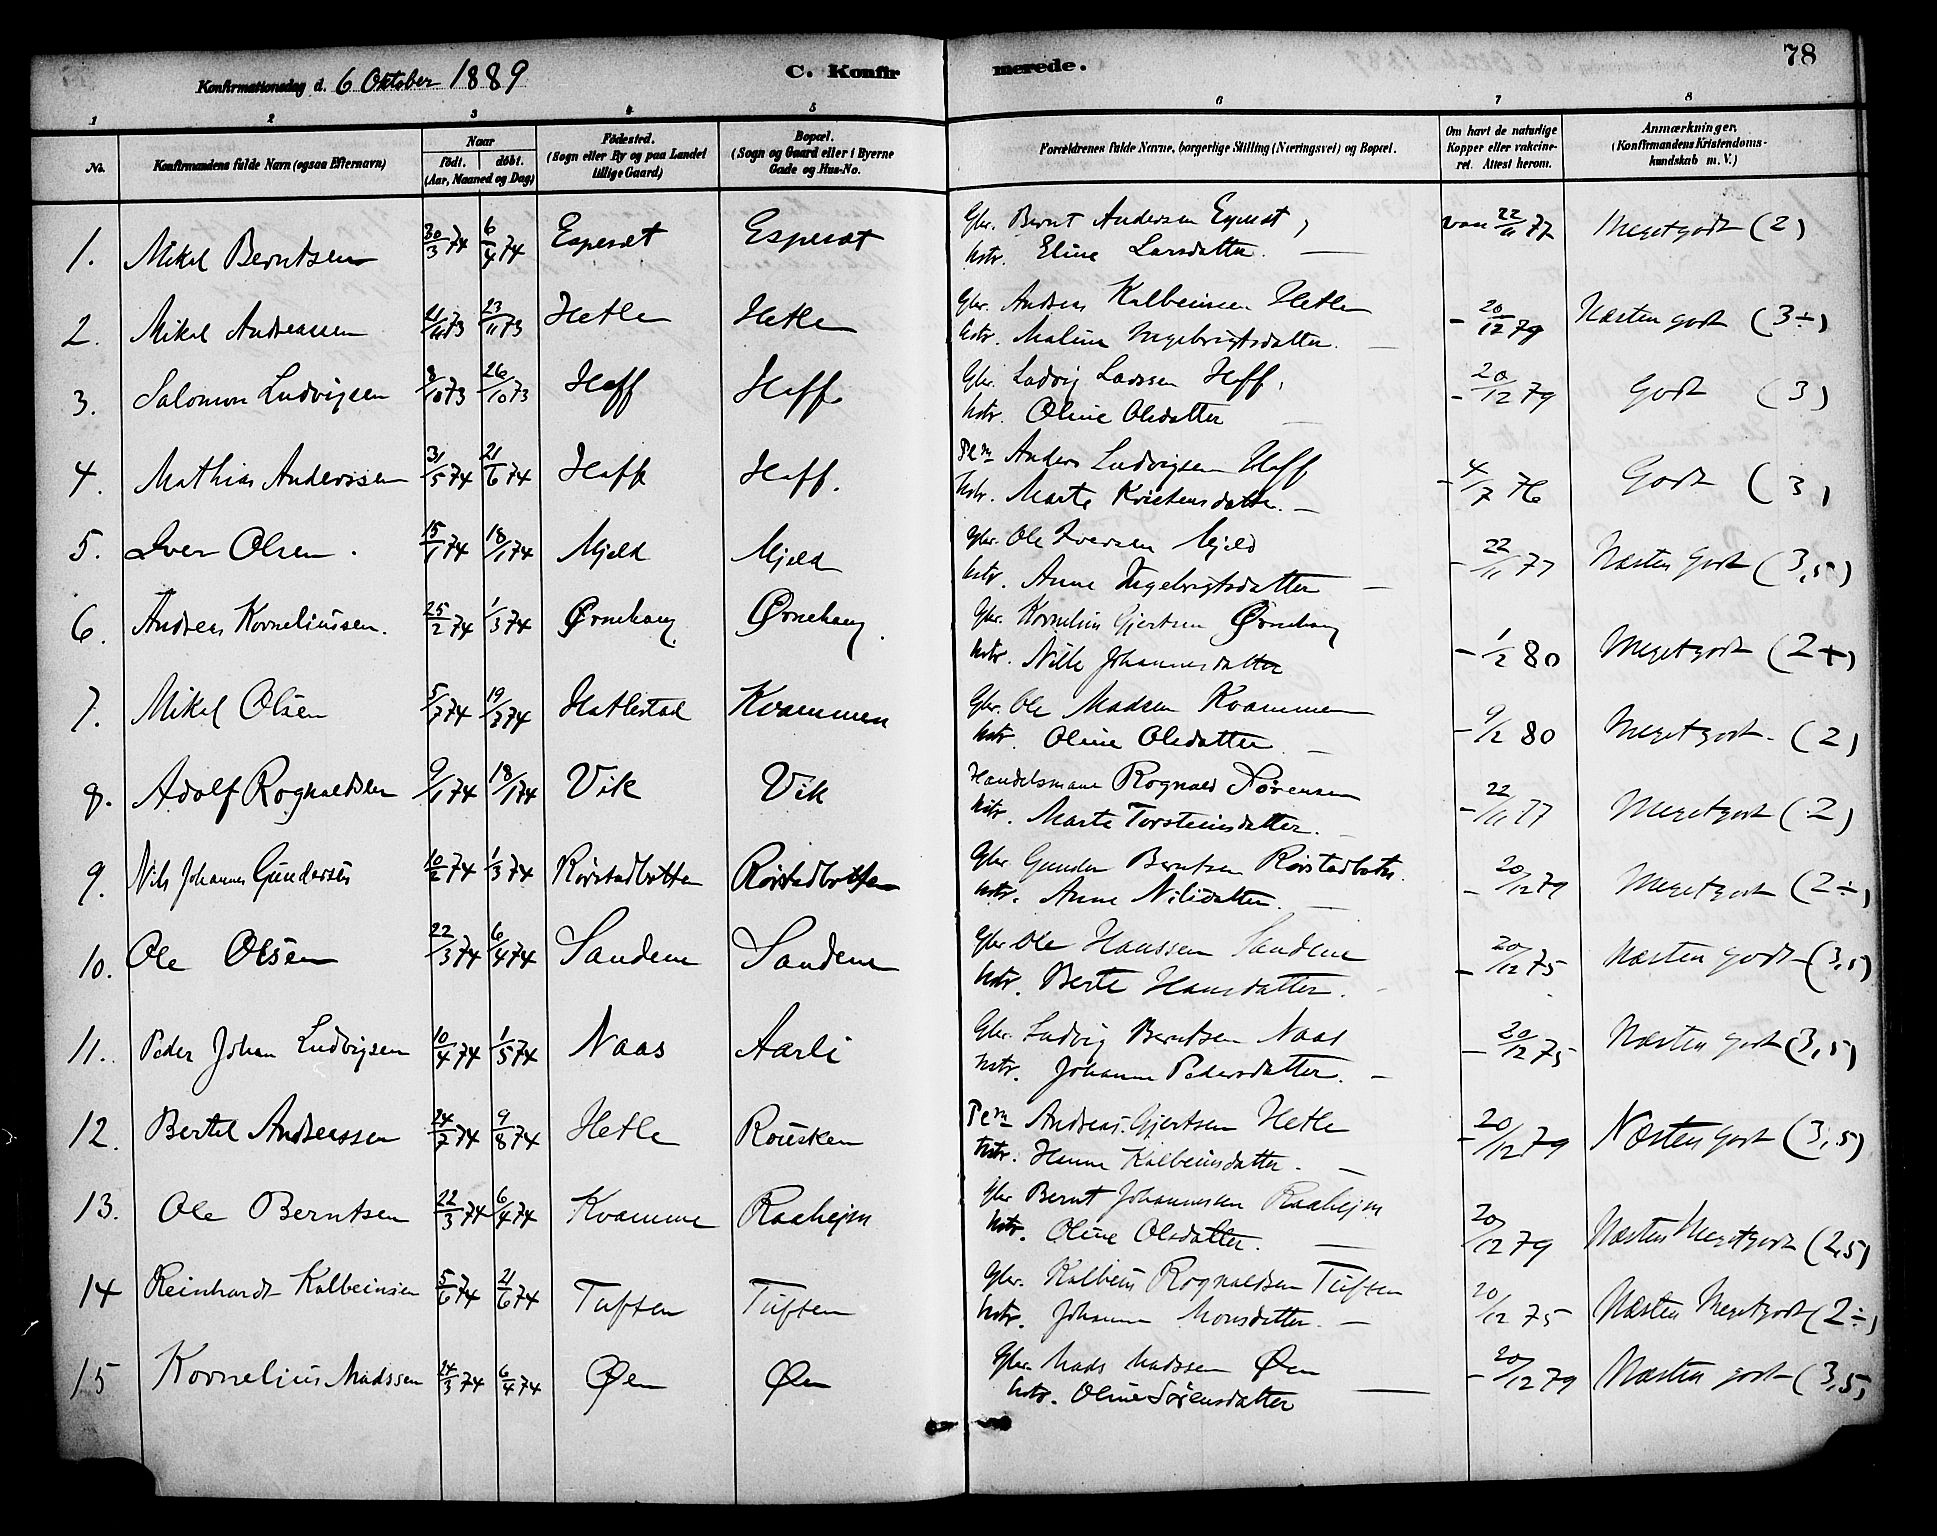 78
Konfirmationsdag d. 6 Oktober 1889
C. Konfirmerede.
1 2 3 4 5 6 7 8
No.
Konfirmandens fulde Navn (ogsaa Efternavn)
Naar
födt. döbt.
(Aar, Maaned og Dag)
Födested.
(Sogn eller By og paa Landet
tillige Gaard)
Bopæl.
(Sogn og Gaard eller i Byerne
Gade og Hus-No.
Forældrenes fulde Navne, borgerlige Stilling (Næringsvei) og Bopæl.
Om havt de naturlige
Kopper eller vakcine-
ret. Attest herom.
Anmærkninger.
(Konfirmandens Kristendoms-
kundskab m. V.)
1. Mikal Berntsen 30/3 74 6/4 74 Espesæt Espesæt Gbr. Bernt Andersen Espesæt, vac 22/11 77 Megetgodt (2)
Hstr. Eline Larsdatter. —
2. Mikal Andreassen 23/11 73 Hetle Hetle Gbr. Andreas Kolbeinsen Hetle - 20/12 79 Næsten godt (3÷)
Hstr. Malina Ingebrigtsdatter. —
3. Salomon Ludvigsen 8/10 73 26/10 73 Haff Haff. Gbr. Ludvig Larssen Haff. - 20/12 79 Godt (3)
Hstr. Oline Olsdatter —
4. Mathias Anderssen 31/5 74 21/6 74 Haff Haff. Pl.m Anders Ludvigsen Haff - 4/7 76 Godt (3)
Hstr. Marte Kristensdatter. —
5. Iver Olsen. 15/1 74 18/1 74 Mjeld Mjeld Gbr. Ole Iversen Mjeld - 22/11 77 Næsten godt (3,5)
Hstr. Anne Ingebrigtsdatter —
6. Andreas Korneliussen. 25/2 74 1/3 74 Ørnehaug Ørnehaug. Gbr. Kornelius Gjertsen Ørnehaug - 1/2 80 Megetgodt (2+)
Hstr. Nille Johannesdatter
7. Mikal Olsen 5/7 74 19/7 74 Hatlestad Kvammen Gbr. Ole Madsen Kvammen - 9/12 80 Megetgodt. (2)
Hstr. Oline Olsdatter. —
8. Adolf Rognaldsen 9/1 74 18/1 74 Vik Vik Handelsmann Rognald Sørensen - 22/11 77 Megetgodt (2)
Hstr. Marte Torsteinsdatter. —
9. Nils Johannes Gundersen 10/2 74 1/3 74 Rørstadbotten Rørstadbotten Gbr. Gunder Berntsen Rørstadbotten. - 20/12 79 Megetgodt (2÷)
Hstr. Anne Nilsdatter. —
10. Ole Olsen 22/3 74 6/4 74 Sandene Sandene Gbr. Ole Hanssen Sandene - 20/12 75 Næsten godt (3,5)
Hstr. Berte Hansdatter. —
11. Peder Johan Ludvigsen 10/4 74 1/5 74 Naas Aarli Gbr. Ludvig Berntsen Naas - 20/12 75 Næsten godt (3,5)
Hstr. Johanne Pedersdatter. —
12. Bertel Andreassen 24/7 74 9/8 74 Hetle Rousken Pl.m Andreas Gjertsen Hetle - 20/12 79 Næsten godt (3,5)
Hstr. Hanna Kolbeinsdatter. —
13. Ole Berntsen 22/3 74 6/4 74 Kvamme Raaheim Gbr. Bernt Johannessen Raaheim 20/12 79 Næsten Megetgodt (2,5)
Hstr. Oline Olsdatter. —
14 Reinhardt Kolbeinsen 5/6 74 21/6 74 Tuften Tuften Gbr. Kolbein Rognaldsen Tuften 20/12 75 Næsten Megetgodt (2÷)
Hstr. Johanne Monsdatter. —
15 Kornelius Madssen 24/3 74 6/4 74 Øen Øen Gbr. Mads Madssen Øen - 20/12 79 Næsten godt (3,5)
Hstr. Oline Sørensdatter —